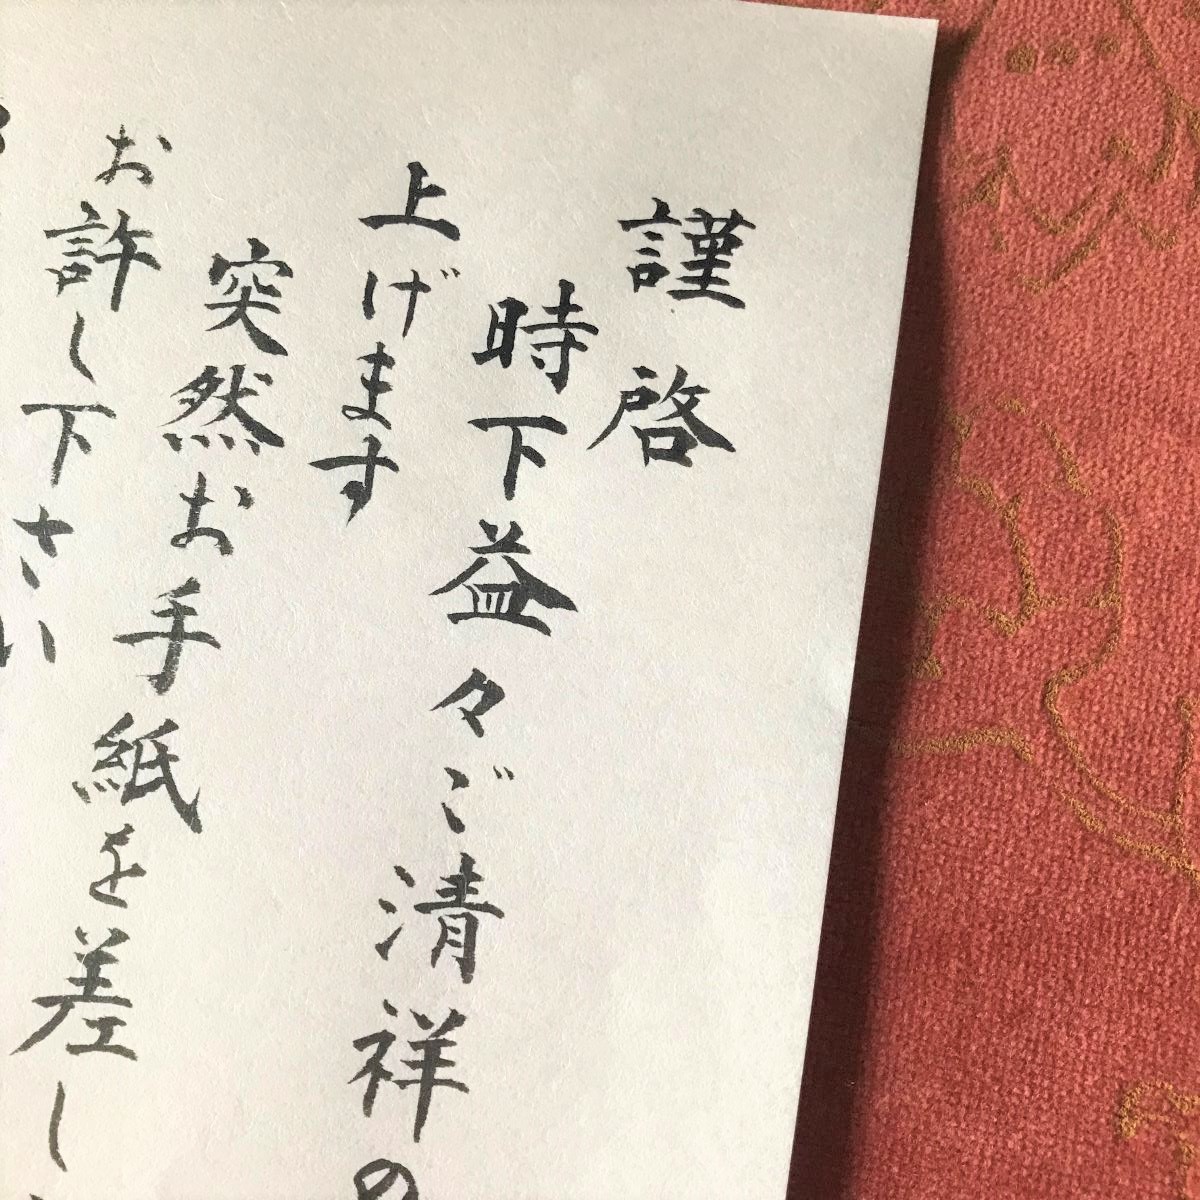 謹啓
時下益々ご清祥の
上げます
突然お手紙を差し
お許し下さい